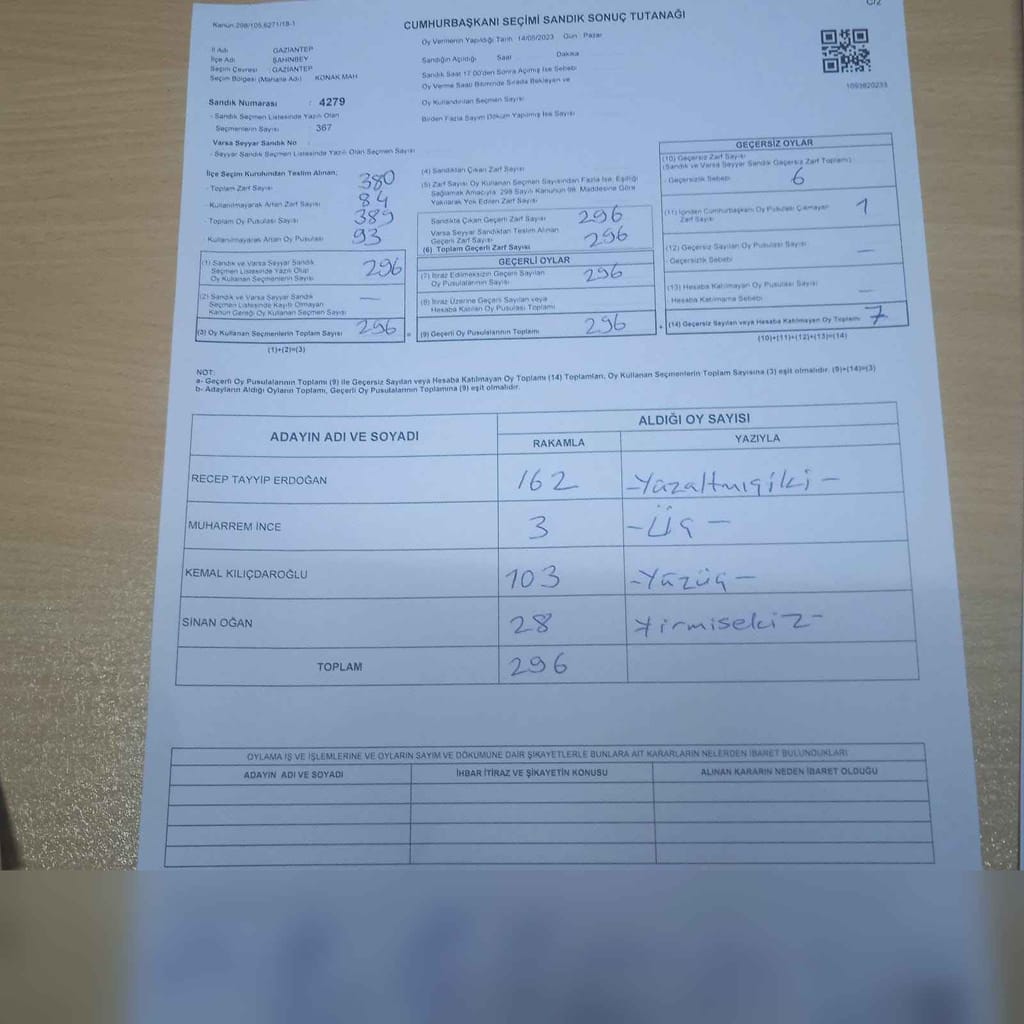 Kanun:298/105.6271/18-1
C/2
CUMHURBAŞKANI SEÇİMİ SANDIK SONUÇ TUTANAĞI
İl Adı GAZİANTEP
İlçe Adı ŞAHİNBEY
Seçim Çevresi GAZİANTEP
Seçim Bölgesi (Mahalle Adı) KONAK MAH
Sandık Numarası : 4279
- Sandık Seçmen Listesinde Yazılı Olan
Seçmenlerin Sayısı : 367
Varsa Seyyar Sandık No :
- Seyyar Sandık Seçmen Listesinde Yazılı Olan Seçmen Sayısı
Oy Vermenin Yapıldığı Tarih 14/05/2023 Gün Pazar
Sandığın Açıldığı Saat Dakika
Sandık Saat 17.00'den Sonra Açılmış İse Sebebi
Oy Verme Saati Bitiminde Sırada Bekleyen ve
Oy Kullandırılan Seçmen Sayısı
Birden Fazla Sayım Döküm Yapılmış İse Sayısı
1093820233
İlçe Seçim Kurulundan Teslim Alınan;
- Toplam Zarf Sayısı 380
- Kullanılmayarak Artan Zarf Sayısı 84
- Toplam Oy Pusulası Sayısı 389
Kullanılmayarak Artan Oy Pusulası 93
(1) Sandık ve Varsa Seyyar Sandık
Seçmen Listesinde Yazılı Olup
Oy Kullanan Seçmenlerin Sayısı 296
(2) Sandık ve Varsa Seyyar Sandık
Seçmen Listesinde Kayıtlı Olmayan
Kanun Gereği Oy Kullanan Seçmen Sayısı —
(3) Oy Kullanan Seçmenlerin Toplam Sayısı 296 =
(1)+(2)=(3)
(4) Sandıktan Çıkan Zarf Sayısı
(5) Zarf Sayısı Oy Kullanan Seçmen Sayısından Fazla İse, Eşitliği
Sağlamak Amacıyla 298 Sayılı Kanunun 98. Maddesine Göre
Yakılarak Yok Edilen Zarf Sayısı
Sandıkta Çıkan Geçerli Zarf Sayısı 296
Varsa Seyyar Sandıktan Teslim Alınan
Geçerli Zarf Sayısı
(6) Toplam Geçerli Zarf Sayısı 296
GEÇERLİ OYLAR
(7) İtiraz Edilmeksizin Geçerli Sayılan
Oy Pusulalarının Sayısı 296
(8) İtiraz Üzerine Geçerli Sayılan veya
Hesaba Katılan Oy Pusulası Toplamı
(9) Geçerli Oy Pusulalarının Toplamı 296 +
GEÇERSİZ OYLAR
(10) Geçersiz Zarf Sayısı
(Sandık ve Varsa Seyyar Sandık Geçersiz Zarf Toplamı)
- Geçersizlik Sebebi 6
(11) İçinden Cumhurbaşkanı Oy Pusulası Çıkmayan
Zarf Sayısı 1
(12) Geçersiz Sayılan Oy Pusulası Sayısı
- Geçersizlik Sebebi —
(13) Hesaba Katılmayan Oy Pusulası Sayısı
Hesaba Katılmama Sebebi —
(14) Geçersiz Sayılan veya Hesaba Katılmayan Oy Toplamı 7
(10)+(11)+(12)+(13)=(14)
NOT:
a- Geçerli Oy Pusulalarının Toplamı (9) ile Geçersiz Sayılan veya Hesaba Katılmayan Oy Toplamı (14) Toplamları, Oy Kullanan Seçmenlerin Toplam Sayısına (3) eşit olmalıdır. (9)+(14)=(3)
b- Adayların Aldığı Oyların Toplamı, Geçerli Oy Pusulalarının Toplamına (9) eşit olmalıdır.
ADAYIN ADI VE SOYADI
ALDIĞI OY SAYISI
RAKAMLA YAZIYLA
RECEP TAYYİP ERDOĞAN 162 -Yüzaltmışiki-
MUHARREM İNCE 3 -Üç-
KEMAL KILIÇDAROĞLU 103 -Yüzüç-
SİNAN OĞAN 28 Yirmisekiz-
TOPLAM 296
OYLAMA İŞ VE İŞLEMLERİNE VE OYLARIN SAYIM VE DÖKÜMÜNE DAİR ŞİKAYETLERLE BUNLARA AİT KARARLARIN NELERDEN İBARET BULUNDUKLARI
ADAYIN ADI VE SOYADI İHBAR İTİRAZ VE ŞİKAYETİN KONUSU ALINAN KARARIN NEDEN İBARET OLDUĞU